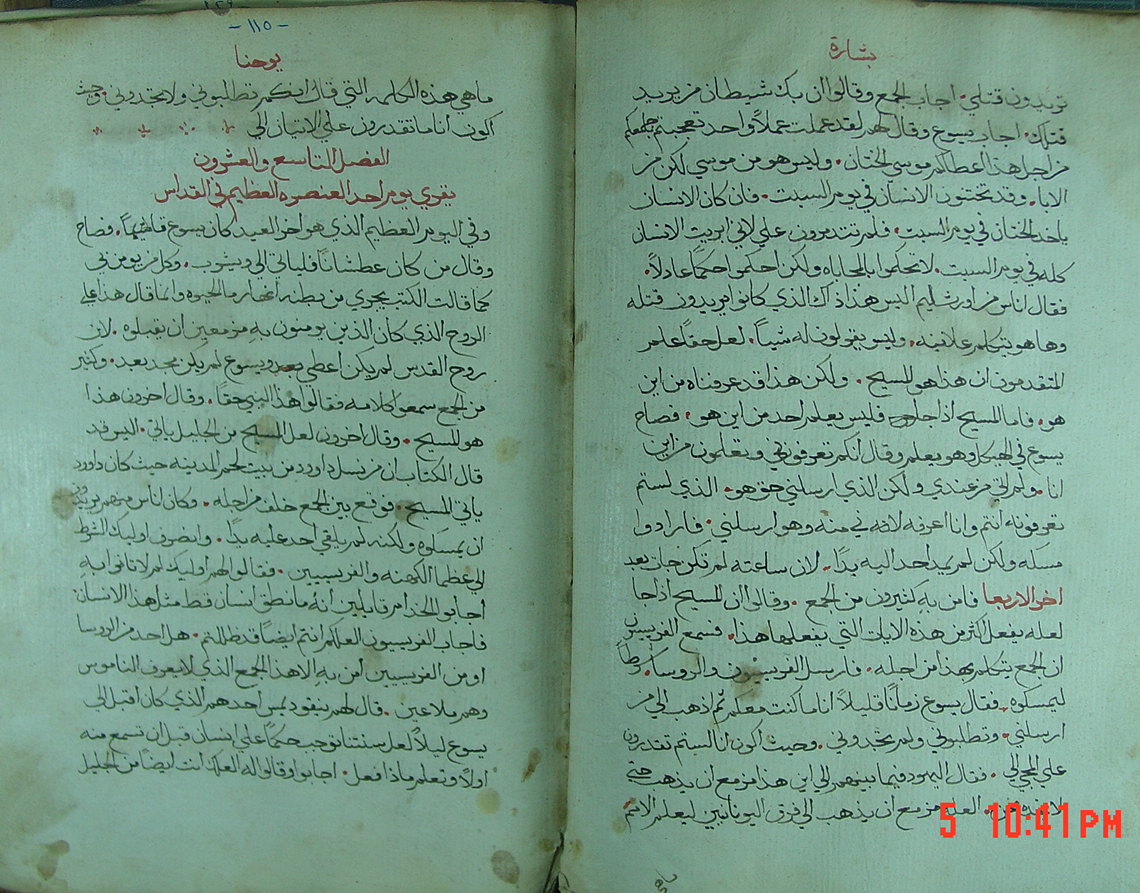 بشارة
تريدون قتلي. اجاب الجمع وقالوا ان بك شيطان من يريد
قتلك. اجاب يسوع وقال لهم لقد عملت عملاً واحد تعجبتم جميعكم
من اجل هذا اعطاكم موسى الختان. وليس هو من موسي لكن من
الابا. وقد تختنون الانسان في يوم السبت. فان كان الانسان
ياخد الختان في يوم السبت. فلم تتدمرون علي لاني ابريت الانسان
كله في يوم السبت. لا تحكموا بالمحاباه ولكن احكموا حكماً عادلاً.
فقال اناس من اورشليم اليس هذا ذاك الذي كانوا يريدون قتله
وها هو يتكلم علانيه. وليس يقولون له شياً. لعل حقاً علم
المتقدمون ان هذا هو المسيح. ولكن هذا قد عرفناه من اين
هو. فاما المسيح اذا جا فليس يعلم احد من اين هو. فصاح
يسوع في الهيكل وهو يعلم وقال انكم تعرفوني وتعلمون من اين
انا. ولم اتي من عندي ولكن الذي ارسلني حق هو. الذي لستم
تعرفونه انتم وانا اعرفه لاني منه وهو ارسلني. فارادوا
مسكه ولكن لم يمد احد اليه يدًا. لان ساعته لم تكن جات بعد
اخر الاربعا فامن به كثيرون من الجمع. وقالوا ان المسيح اذا جا
لعله يفعل اكثر من هذه الايات التي يفعلها هذا. فسمع الفريسيون
ان الجمع يتكلم بهذا من اجله. فارسل الفريسيون والروسا شرطاً
ليمسكوه. فقال يسوع زمانًا قليلاً انا معكم ثم اذهب الي من
ارسلني. وتطلبوني ولم تجدوني. وحيث اكون انا لستم تقدرون
علي المجي الي. فقال اليهود فيما بينهم الي اين هذا مزمع ان يذهب حتي
لا نجده نحن. العله مزمع ان يذهب الي فرق اليونانيين ليعلم الامم
- ١١٥ -
يوحنا
ما هي هذه الكلمه التي قال انكم تطلبوني ولا تجدوني. وحيث
اكون انا ما تقدرون علي الاتيان الي
الفصل التاسع والعشرون
يقري يوم احد العنصره العظيم في القداس
وفي اليوم العظيم الذي هو اخر العيد كان يسوع قايمًا. فصاح
وقال من كان عطشانًا فلياتي الي ويشرب. وكل من يومن بي
كما قالت الكتب يجري من بطنه انهار ما الحيوه وانما قال هذا علي
الروح الذي كان الذين يومنون به مزمعين ان يقبلوه. لان
روح القدس لم يكن اعطي بعد ويسوع لم يكن مجد بعد. وكثير
من الجمع سمعوا كلامه فقالوا هذا النبي حقًا. وقال اخرون هذا
هو المسيح. وقال اخرون لعل المسيح من الجليل ياتي. اليس قد
قال الكتاب ان من نسل داوود من بيت لحم المدينه حيث كان داوود
ياتي المسيح. فوقع بين الجمع خلف من اجله. وكان اناس منهم يريدون
ان يمسكوه ولكنه لم يلقي احد عليه يدًا. وانصرف اوليك الشرط
الي عظما الكهنه والفريسيين. فقالوا لهم اوليك لم لا تاتوا به
اجابوا الخدام قايلين انه ما نطق انسان قط مثل هذا الانسان
فاجاب الفريسيون العلكم انتم ايضًا قد ظللتم. هل احد من الروسا
او من الفريسيين امن به الا هذا الجمع الذي لا يعرف الناموس
وهم ملاعين. قال لهم نيقوديمس احدهم الذي كان اقبل الي
يسوع ليلاً لعل سنتنا توجب حكمًا علي انسان قبل ان تسمع منه
اولاً وتعلم ماذا فعل. اجابوا وقالوا له العلك انت ايضًا من الجليل
5 10:41 PM